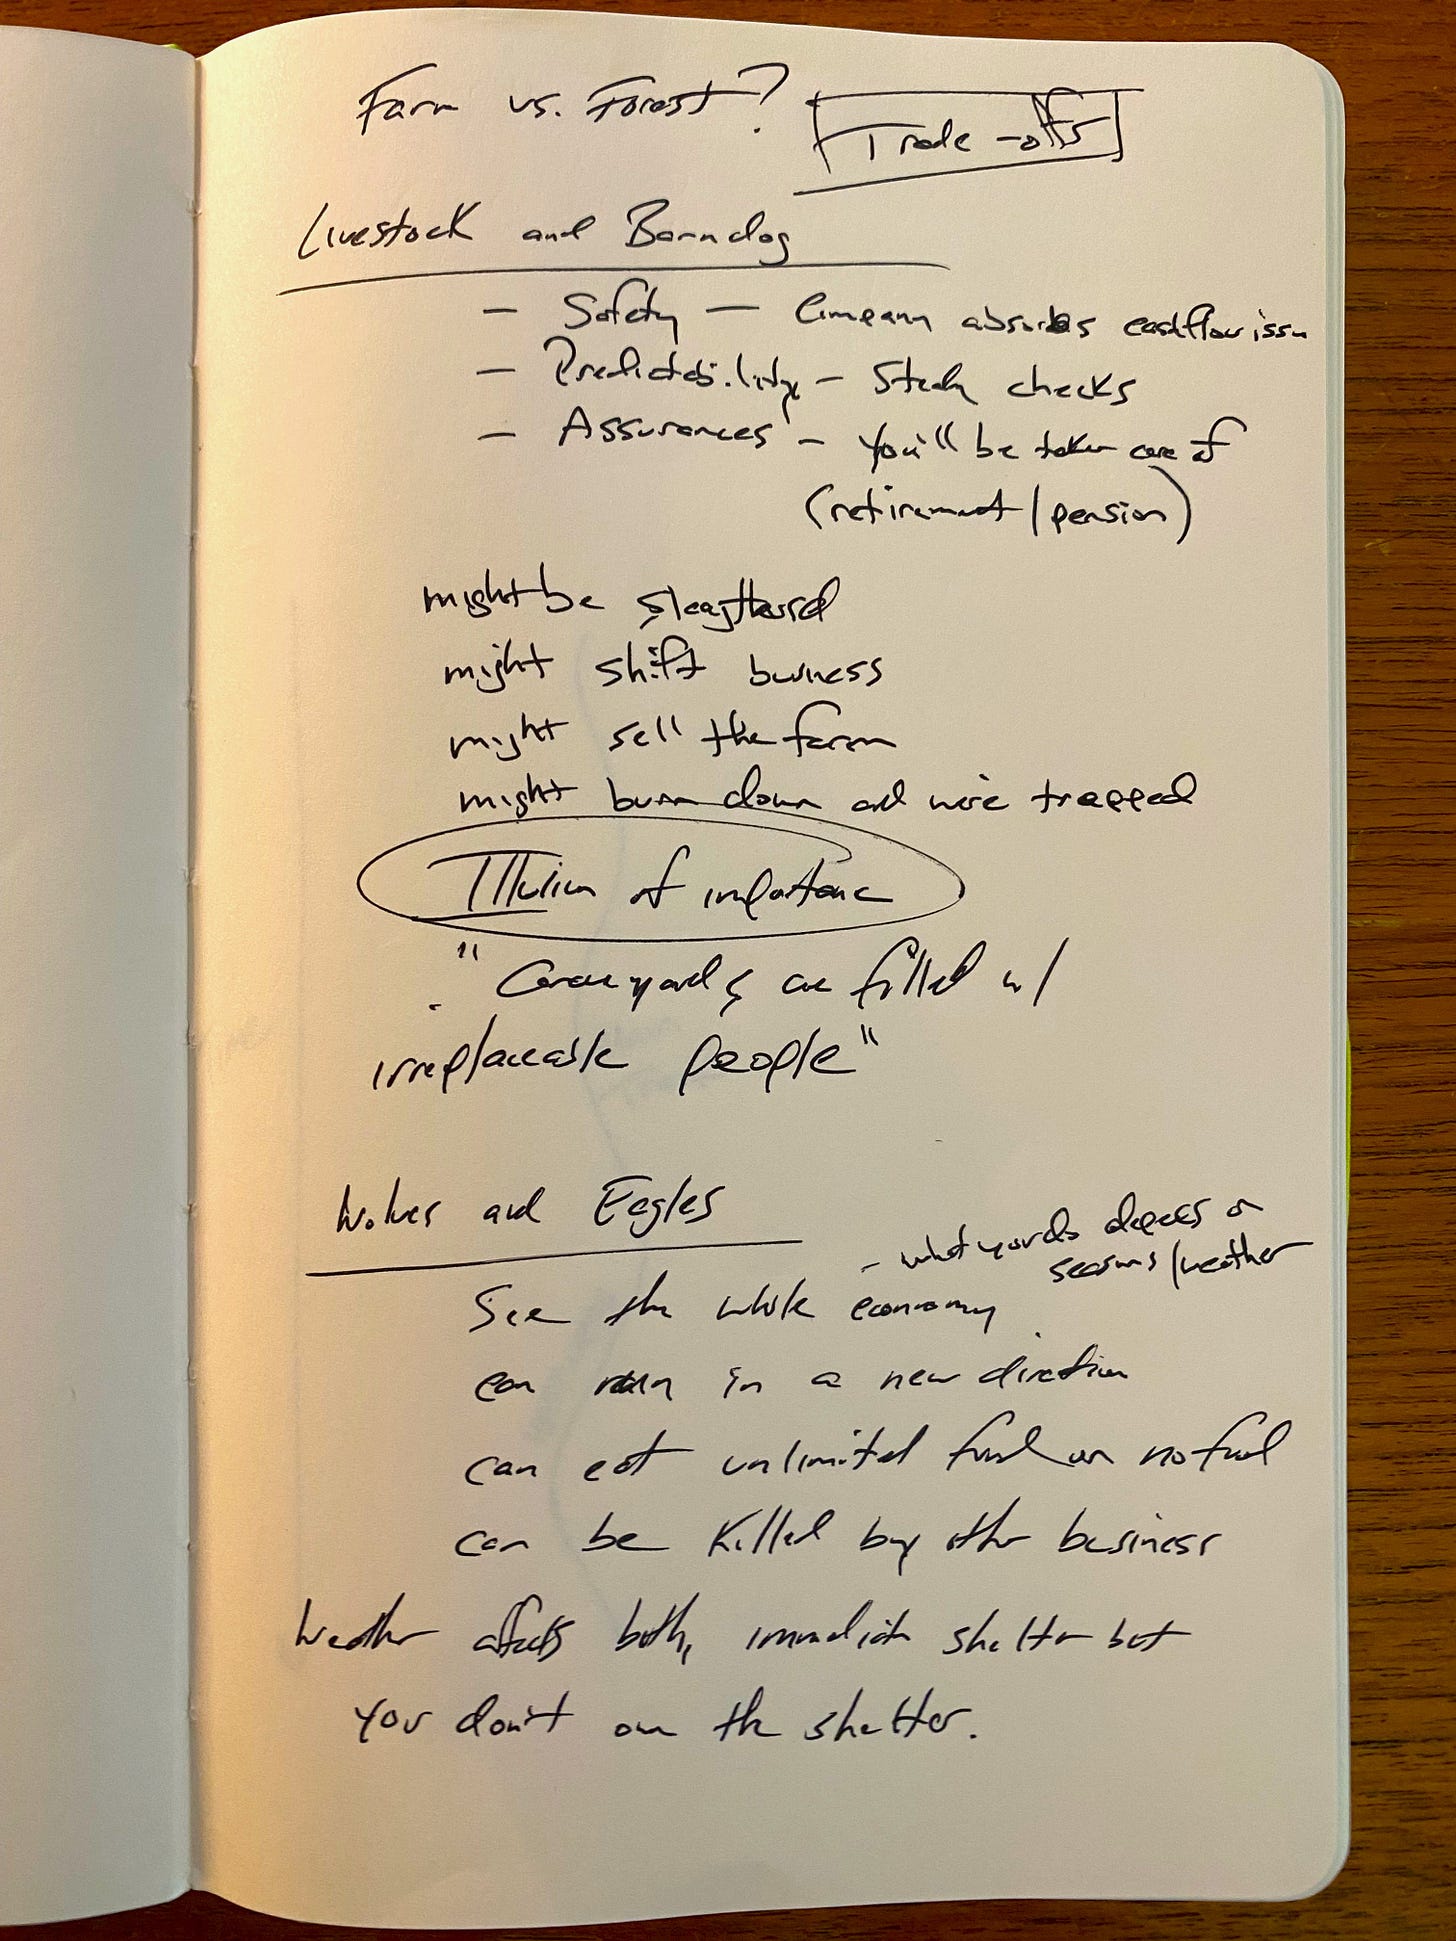 Farm vs. Forest?
Trade-offs
Livestock and Barndog
- Safety - Company absorbs cashflow issu
- Predictability - Steady checks
- Assurances - You'll be taken care of
(retirement/pension)
might be
might shift business
might sell the farm
might burn down and we're trapped
Illusion of importance
"Graveyards are filled w/
irreplaceable people"
Wolves and Eagles
- what you do depends on
seasons/weather
See the whole economy
can run in a new direction
can eat unlimited food or no food
can be killed by other business
Weather affects both, immediate shelter but
you don't own the shelter.